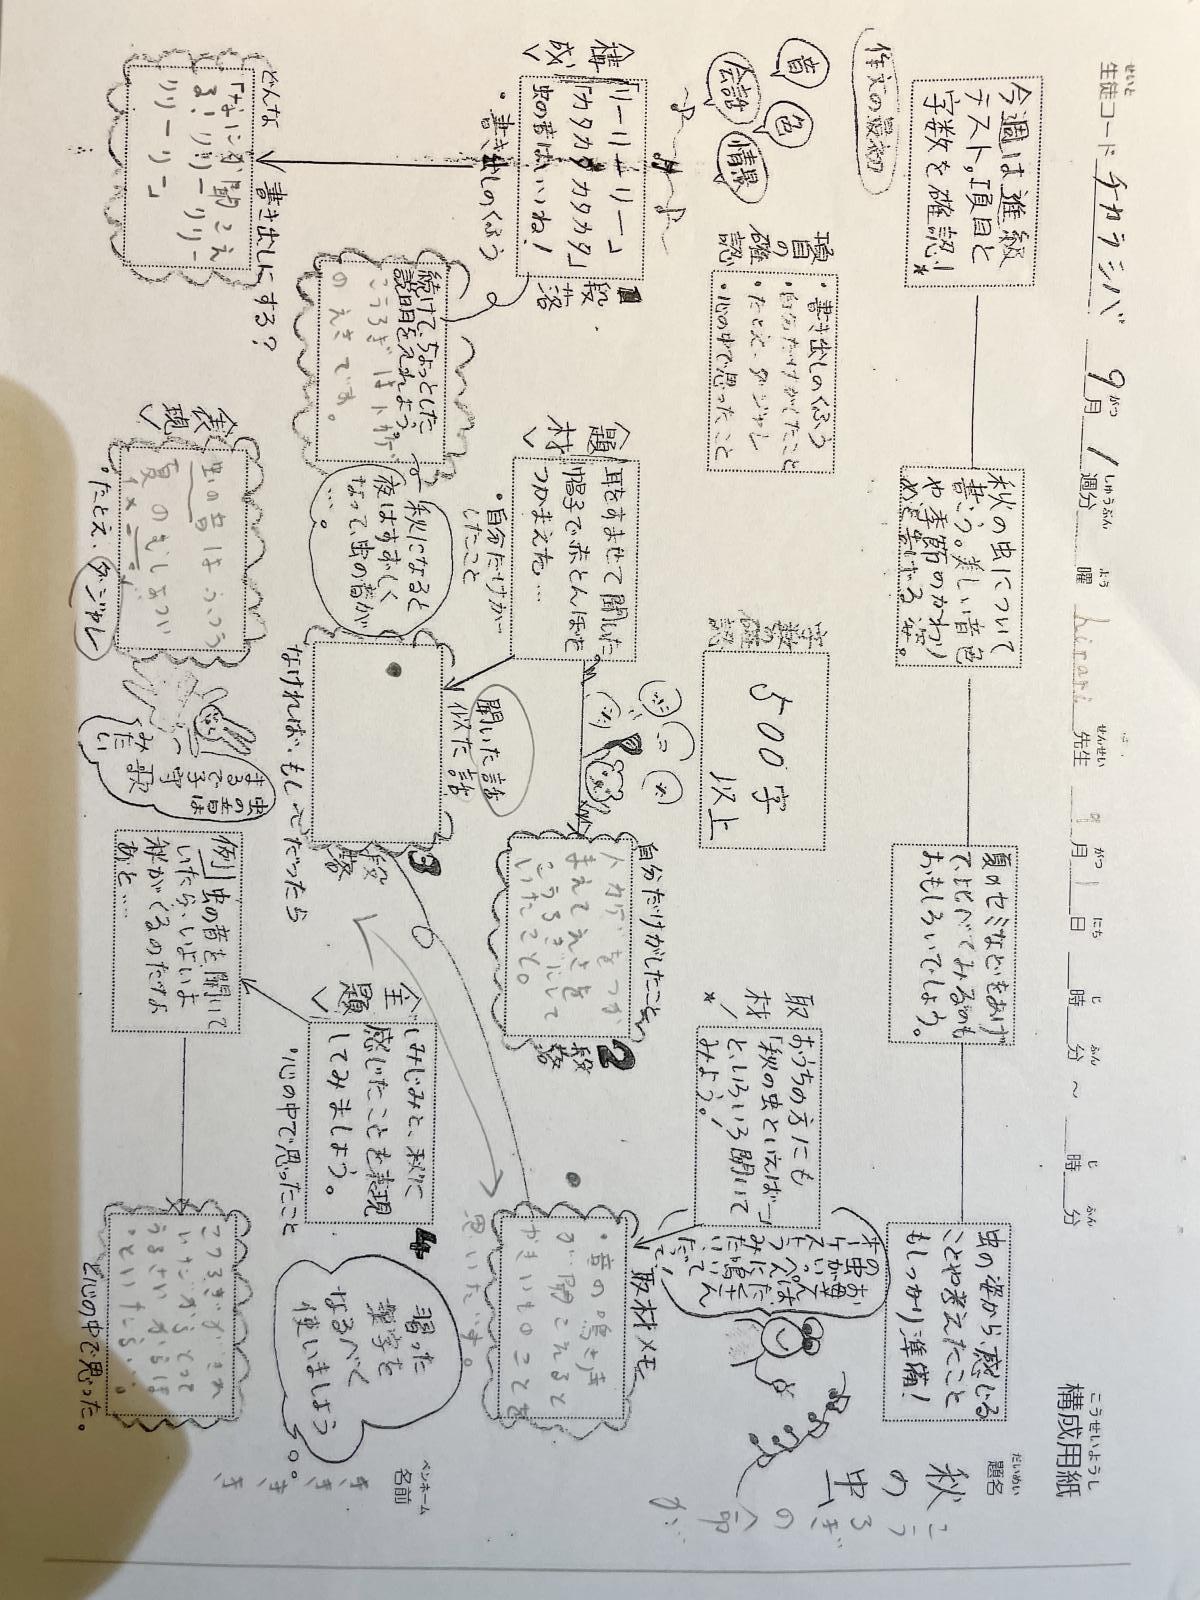 構成用紙
こうせいようし
せいと
生徒コード チカラシバ
9月1週分
がつ
しゅうふん
よう
曜
hirari 先生
せんせい
月1日
がつ
にち
時
じ
分
ふん
～
時
じ
分
ふん
だいめい
題名
秋
の
虫
こうろぎの命
が…
ペンネーム
名前
今週は進級
テスト。項目と
字数を確認!
秋の虫について
書こう。美しい音色
や季節のかわり
めを書けるぜ。
夏のセミなどをあげ
て、比べてみるのも
おもしろいでしょう。
虫の姿から、感じる
ことや考えたこと
もしっかり準備!
作文の最初
音
色
会話
情景
項目の確認
・書き出しのくふう
・自分だけがしたこと
・たとえ・ダジャレ
・心の中で思ったこと
字数の確認
500字
以上
取材
おうちの方にも
「秋の虫といえば…」
といろいろ聞いて
みよう!
構成
「リーリーリー」
「カタカタカタカタ」
虫の音はいいね!
・書き出しのくふう
1
段落
題材
耳をすませて聞いた。
帽子で赤とんぼを
つかまえた…
・自分だけが
したこと
自分だけがしたこと
トカゲをつか
まえてえさを
こうろぎにして
いたこと。
2
段落
取材メモ
・音の鳴き声
が聞こえると
思いたす。
続けて、ちょっとした
説明を入れよう。
こうろぎはトカゲ
のえさです。
秋になると
夜はすずしく
なって、虫の音が
…。
聞いた話
似た話
3
段落
なければ、もし〜だったら
主題
しみじみと、秋に
感じたことを表現
してみましょう。
・心の中で思ったこと
4
習った
漢字を
なるべく
使いましょう
どんな書き出しにする?
「なにか聞こえ
る!リリーリリー
リリーリー」
表現
虫の音はふつう
夏
・たとえ、ダジャレ
虫の音は
まるで子守
歌
みたい
例
虫の音を聞いて
いたら、いよいよ
秋がくるのだなな
あと…
と心の中で思った。